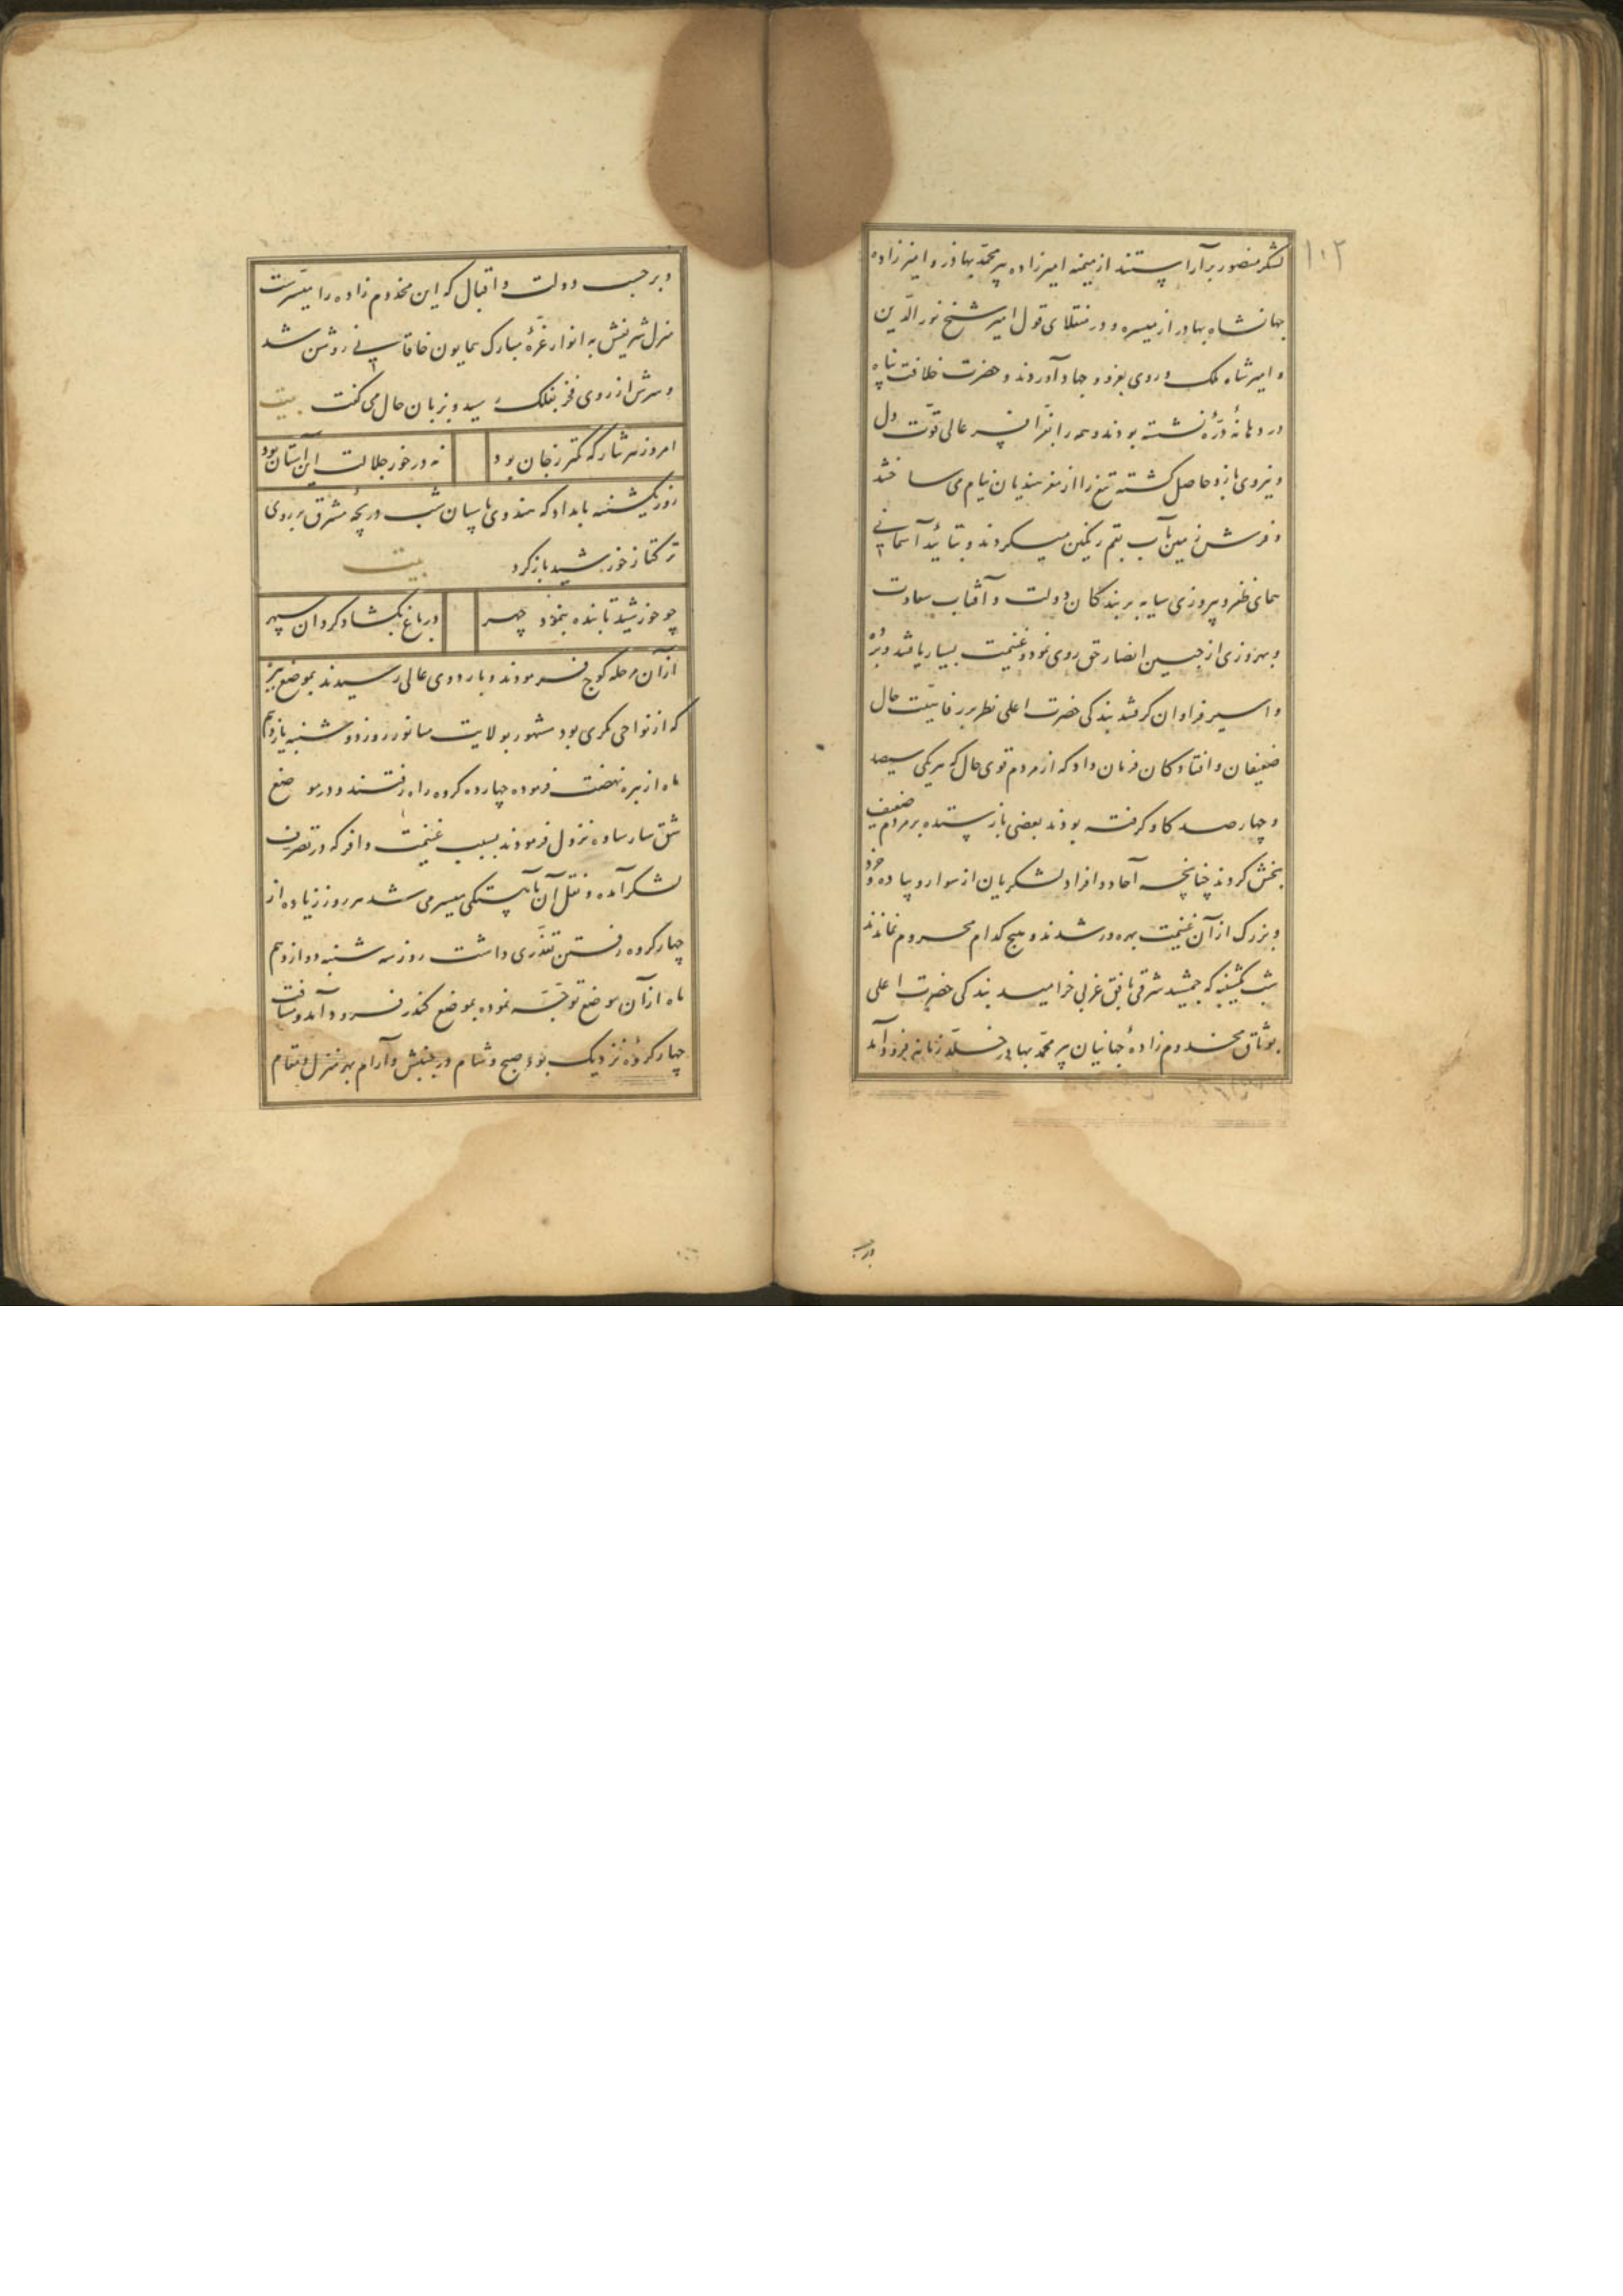 ۱۰۲
لشکر منصور برآراستند از میمنه امیرزاده پیر محمّد بهادر و امیرزاده
جهانشاه بهادر از میسره و در منقلای قول امیر شیخ نور الدّین
و امیر شاه ملک و روی بغزو و جهاد آوردند و حضرت خلافت پناه
در دهانهٔ درّه نشسته بودند و همه را بفرّ عالی قوّت دل
و نیروی بازو حاصل گشته تیغ را از مغز هندیان نیام می ساختند
و فرش زمین بآب بقم رنگین میکردند و بتائید آسمانی
همای ظفر و پیروزی سایه بر بندگان دولت و آفتاب سعادت
و بهروزی از جبین انصار حق روی نمود و غنیمت بسیار یافتند و برده
و اسیر فراوان گرفتند بندگی حضرت اعلی نظر بر رفاهیّت حال
ضعیفان و افتادگان فرمان داد که از مردم قوی حال که هریکی سیصد
و چهارصد گاو گرفته بودند بعضی باز ستده بر مردم ضعیف
بخش کردند چنانچه آحاد و افراد لشکریان از سوار و پیاده و خرد
و بزرگ از آن غنیمت بهره ور شدند و هیچ کدام محروم نماندند
شب یکشنبه که جمشید شرقی بافق غربی خرامید بندگی حضرت اعلی
بوثاق مخدوم زادهٔ جهانیان پیر محمّد بهادر خلّد زمانه فرود آمد
و بر حسب دولت و اقبال که این مخدوم زاده را میسّرست
منزل شریفش به انوار غرّهٔ مبارک همایون خاقانی روشن شد
و سرش از روی فخر بفلک رسید و بزبان حال می گفت بیت
امروز سر نثار که کمتر ز جان بود
نه در خور جلالت این آستان بود
روز یکشنبه بامداد که هندوی پاسبان شب دریچهٔ مشرق بر روی
ترکتاز خورشید باز کرد بیت
چو خورشید تابنده بنمود چهر
در باغ بگشاد گردان سپهر
از آن مرحله کوچ فرمودند و باردوی عالی رسیدند بموضع بیره
که از نواحی بکری بود مشهور بولایت میانور روز دوشنبه یازدهم
ماه از بیره نهضت فرموده چهارده کروه راه رفتند و در موضع
شق سارساوه نزول فرمودند بسبب غنیمت وافر که در تصرف
لشکر آمده و نقل آن بآهستگی میسر می شد هر روز زیاده از
چهار کروه رفتن تعذّری داشت روز سه شنبه دوازدهم
ماه از آن موضع توجّه نموده بموضع کندر فرود آمد و مسافت
چهار کروه نزدیک بود صبح و شام در جنبش و آرام بهر منزل و مقام
و بر حسب